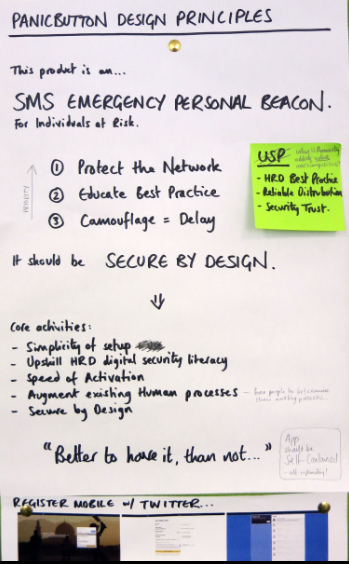 PANICBUTTON DESIGN PRINCIPLES
This product is an...
SMS EMERGENCY PERSONAL BEACON.
For Individuals at Risk.
PRIORITY
① Protect the Network
② Educate Best Practice
③ Camouflage = Delay
USP
- HRD Best Practice
- Reliable Distribution
- Security Trust.
It should be SECURE BY DESIGN.
⇓
Core activities:
- Simplicity of setup
- Upskill HRD digital security literacy
- Speed of Activation
- Augment existing Human processes
- Secure by Design
"Better to have it, than not..."
App
should be
Self-Contained
REGISTER MOBILE w/ TWITTER...